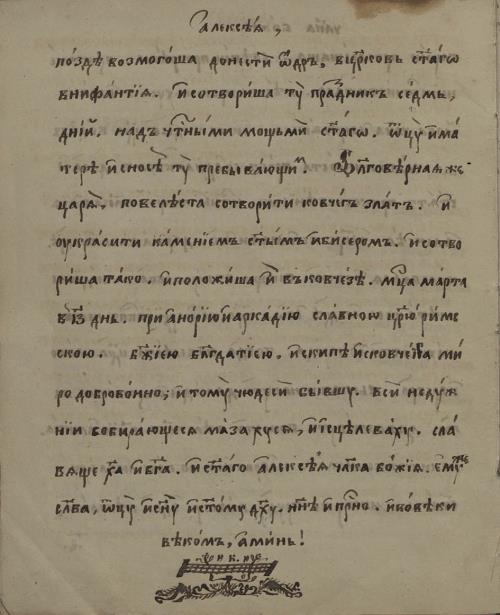 алексѣя,
по́здѣ возмого́ша донестѝ ѻ҆́дръ, вце҃рковь ст҃а́гѡ
внифа́нтїѧ. и҆ сотвори́ша тꙋ̀ пра́здникъ се́дмь,
дні́й. надъ чⷭ҇тны́ми мощьмѝ ст҃а́гѡ. ѻ҆ц҃ꙋ̀ и҆ ма́
тере и҆ сносѣ̀ тꙋ̀ пребыва́ющимъ. Бл҃говѣ́рная же
царѧ̀, повелѣ́ста сотвори́ти ковче́гъ зла́тъ. и҆
оукраси́ти ка́менїемъ ст҃ы́мъ и би́серомъ. и҆ сотво
ри́ша та́ко. и҆ положи́ша и҆̀ въ ковче́зѣ. мц҃а ма́рта
в҃ і҃з҃ днь. при ано́рїю и арка́дїю сла́вною цр҃ю̀ ри́мс
скою. бж҃їею блг҃да́тїею. и҆ скипѣ̀ и҆с ковче́га ми́
ро доброво́нно, и҆ томꙋ̀ чюдесѝ бы́вшꙋ. всѝ недꙋ́ж
нїи вобира́ющеся ма́захꙋсѧ, и҆ и҆сцѣлева́хꙋ. сла́
вяще хр҃та̀ и҆ бг҃а. и҆ ст҃а́го алексѣ́ѧ чл҃ка бо́жїѧ. є҆мꙋ́же
сла́ва, ѻ҆ц҃ꙋ̀ и҆ сн҃ꙋ и҆ ст҃о́мꙋ дх҃ꙋ. нн҃ѣ и҆ при́сно. и҆ во вѣ́ки
вѣко́мъ, ами́нь!